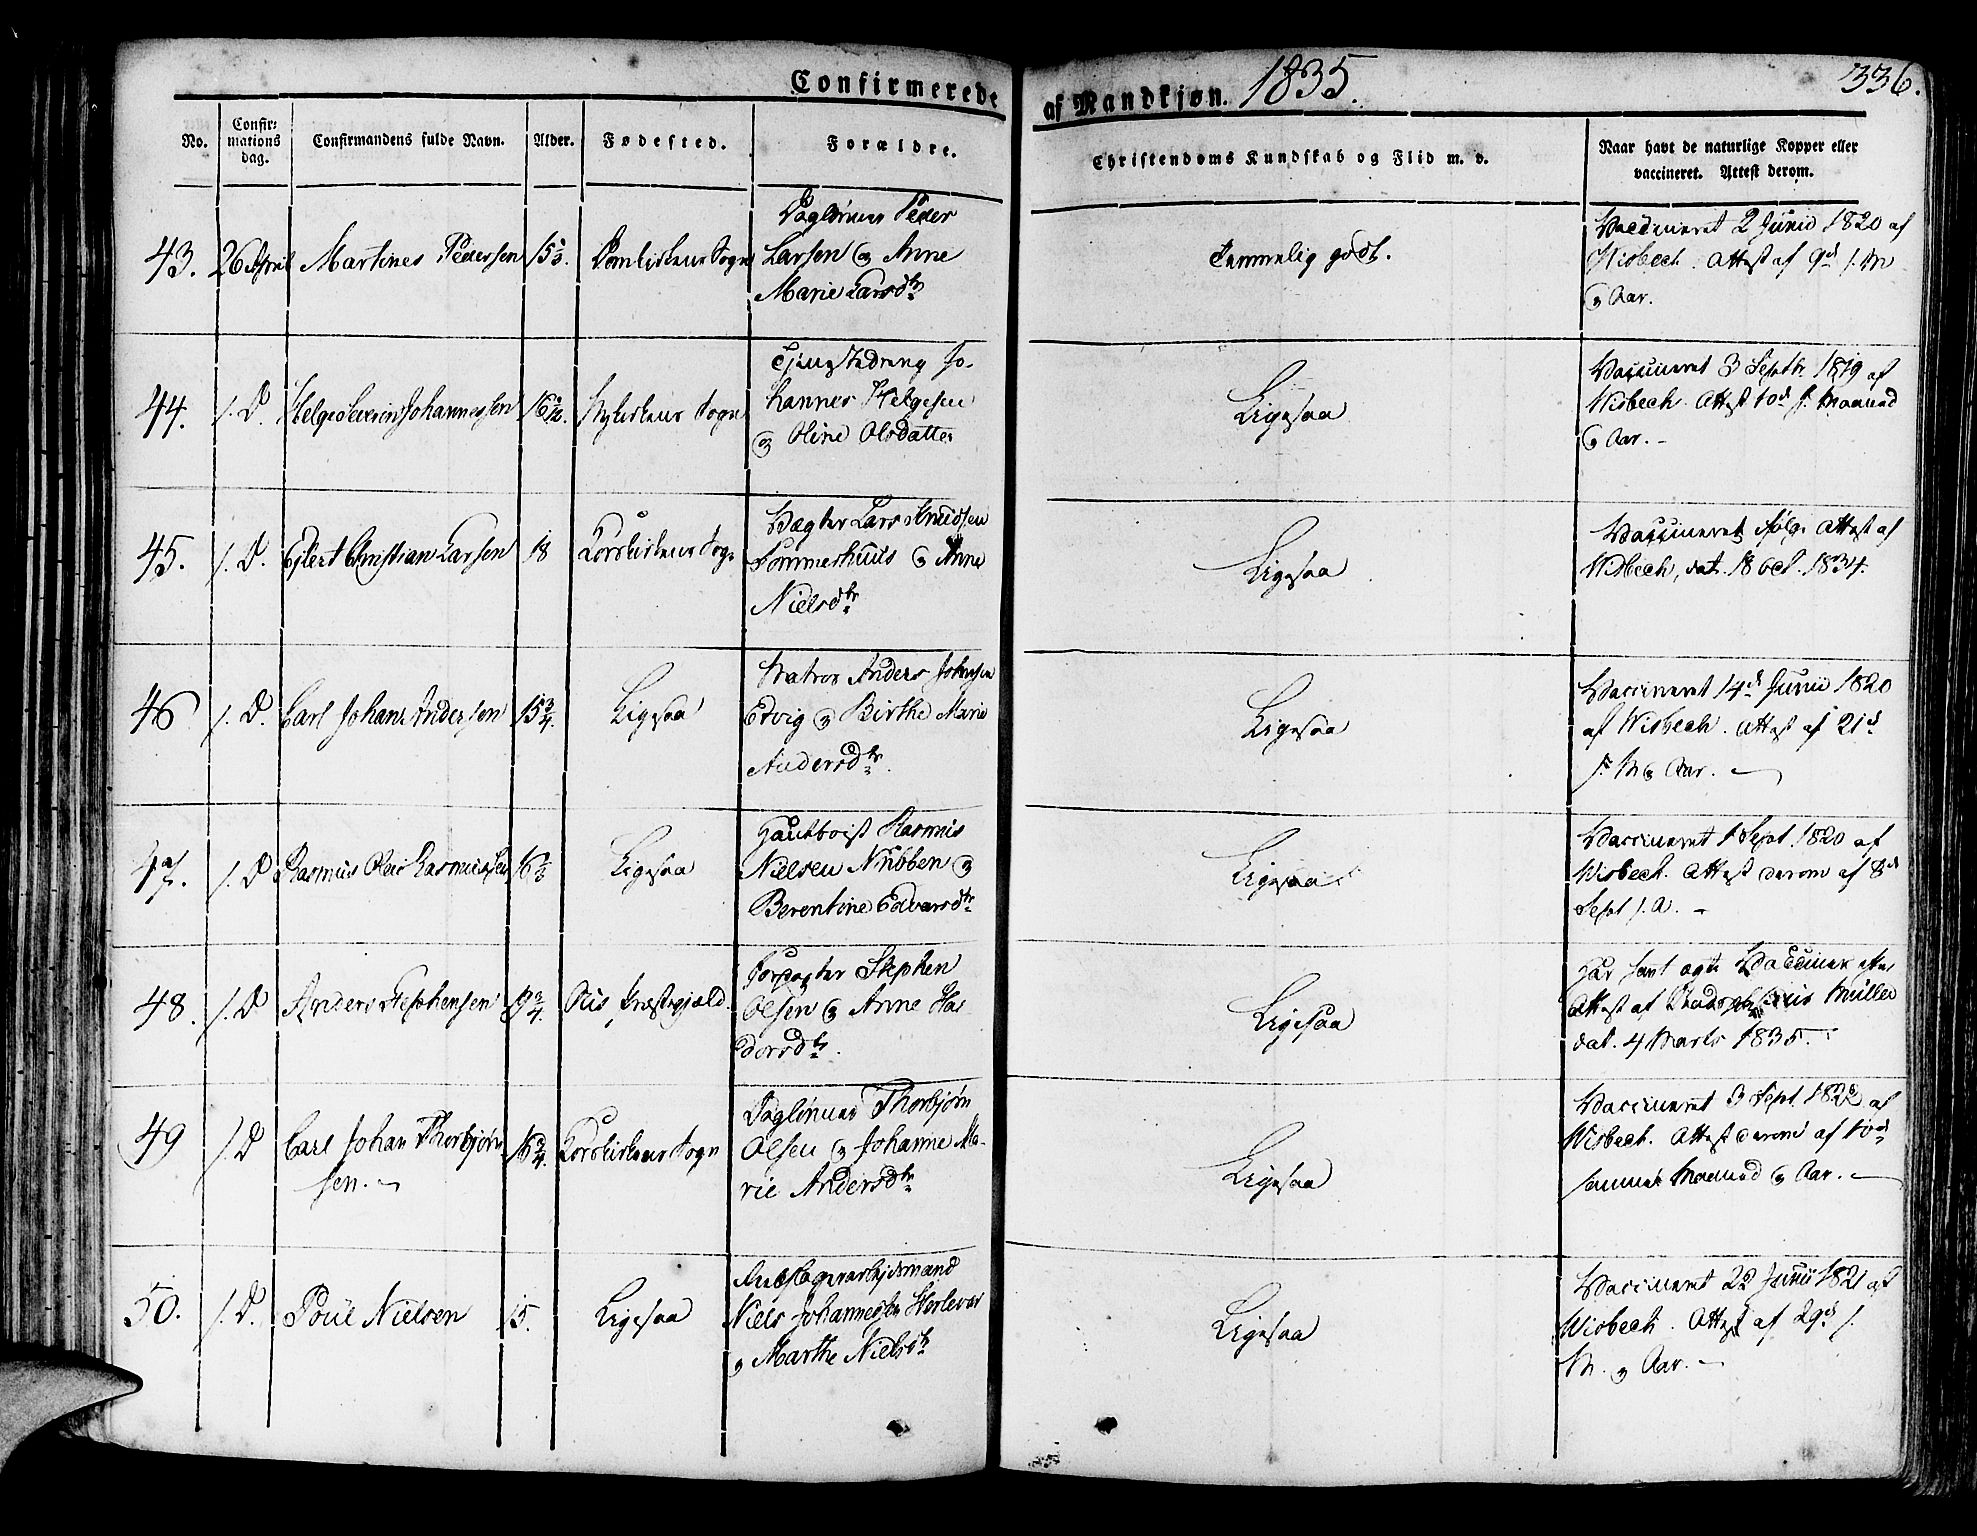 Confirmerede af Mandkjøn. 1835. 336.
No. Confir= mations dag. Confirmandens fulde Navn. Alder. Fødested. Forældre. Christendoms Kundskab og Flid m. v. Naar havt de naturlige Kopper eller vaccineret. Attest derom.
43. 26 April Martines Pedersen Domkirkens Sogn
Dagløner Peder
Larsen og Anne
Marie Larsdtr
Temmelig godt.
Vaccineret 2 Junio 1820 af
Wisbech. Attest af 9d s. M
og Aar.
44. s. D. Helge Severin Johannessen Nykirkens Sogn
Tjenestedreng Jo-
hannes Helgesen
og Oline Olsdatter
Ligesaa
Vaccineret 3 Septr. 1819 af
Wisbech. Attest 10d s. Maaned
og Aar.
45. s. D. Eilert Christian Larsen 18 Korskirkens Sogn
Vægter Lars Knudsen
Sommerhuus og Anne
Nielsdtr
Ligesaa
Vaccineret ifølge Attest af
Wisbech, dat. 18 Oct. 1834.
46 s. D. Carl Johan Andersen 15 3/4. Ligesaa
Matros Anders Johnsen
Edvig og Birthe Marie
Andersdtr.
Ligesaa
Vaccineret 14d Junii 1820
af Wisbech. Attest af 21d
s. M og Aar.
47. s. D Rasmus Olai Rasmussen Ligesaa
Hautboist Rasmus
Nielsen Knøben og
Berentine Edvarsdtr
Ligesaa
Vaccineret 1 Sept. 1820 af
Wisbech. Attest derom af 8d
Sept s. A.
48. s. D Anders Stephensen Præstegjæld.
Stephen
Olsen og Anne Hal-
dorsdtr.
Ligesaa
Har havt ægte Vacciner efter
Attest af Müller
dat. 4 Marts 1835.
49 s. D Carl Johan Thorbjørn
sen. 16 3/4. Korskirkens Sogn
Dagløner Thorbjørn
Olsen og Johanne Ma-
rie Andersdtr
Ligesaa
Vaccineret 3 Sept. af
Wisbech. Attest derom af 10d
samme Maaned og Aar.
50. s. D. Poul Nielsen 15. Ligesaa
Niels Johannessen
og Marthe Nielsdtr
Ligesaa
Vaccineret 22 Junii 1821 af
Wisbech. Attest af 29d s.
M. og Aar.